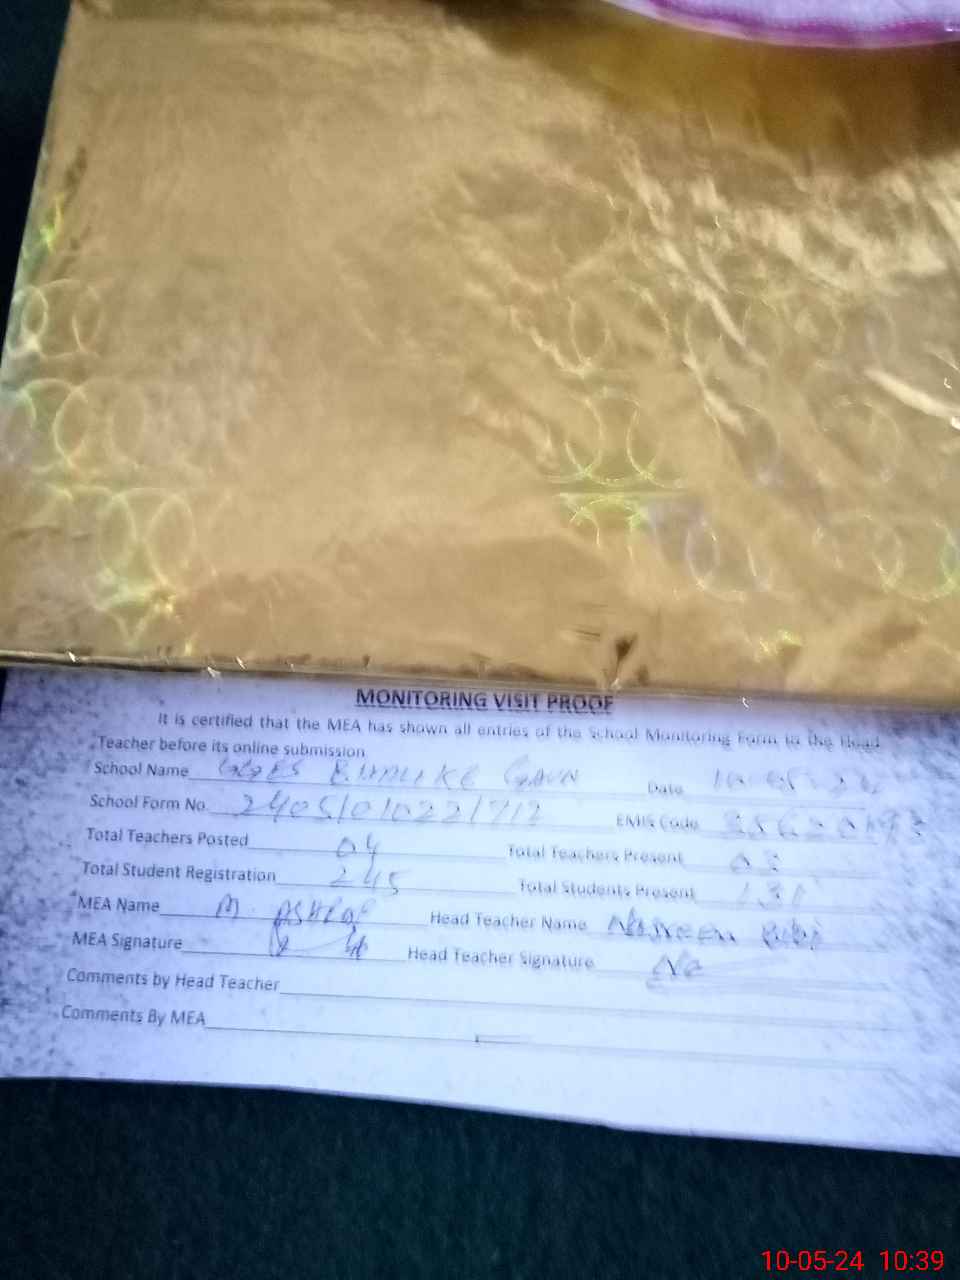 MONITORING VISIT PROOF
It is certified that the MEA has shown all entries of the School Monitoring Form to the Head
Teacher before its online submission
School Name Date 10-05-24
School Form No. 24051010221712 EMIS Code
Total Teachers Posted 04 Total Teachers Present 03
Total Student Registration 245 Total Students Present 131
MEA Name M. ASHRAF Head Teacher Name Nasreen Bibi
MEA Signature Head Teacher Signature
Comments by Head Teacher
Comments By MEA
10-05-24 10:39